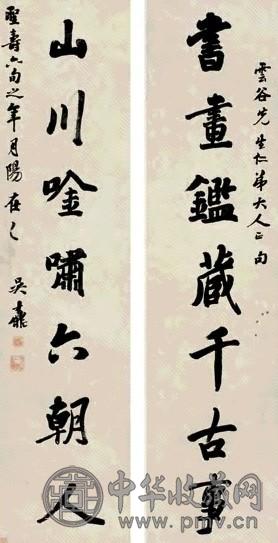 雲谷先生仁弟大人正句
書畫鑑藏千古事
山川唫嘯六朝人
聖壽六旬之年月陽在
吳鼒
中华收藏网
pmv.cn